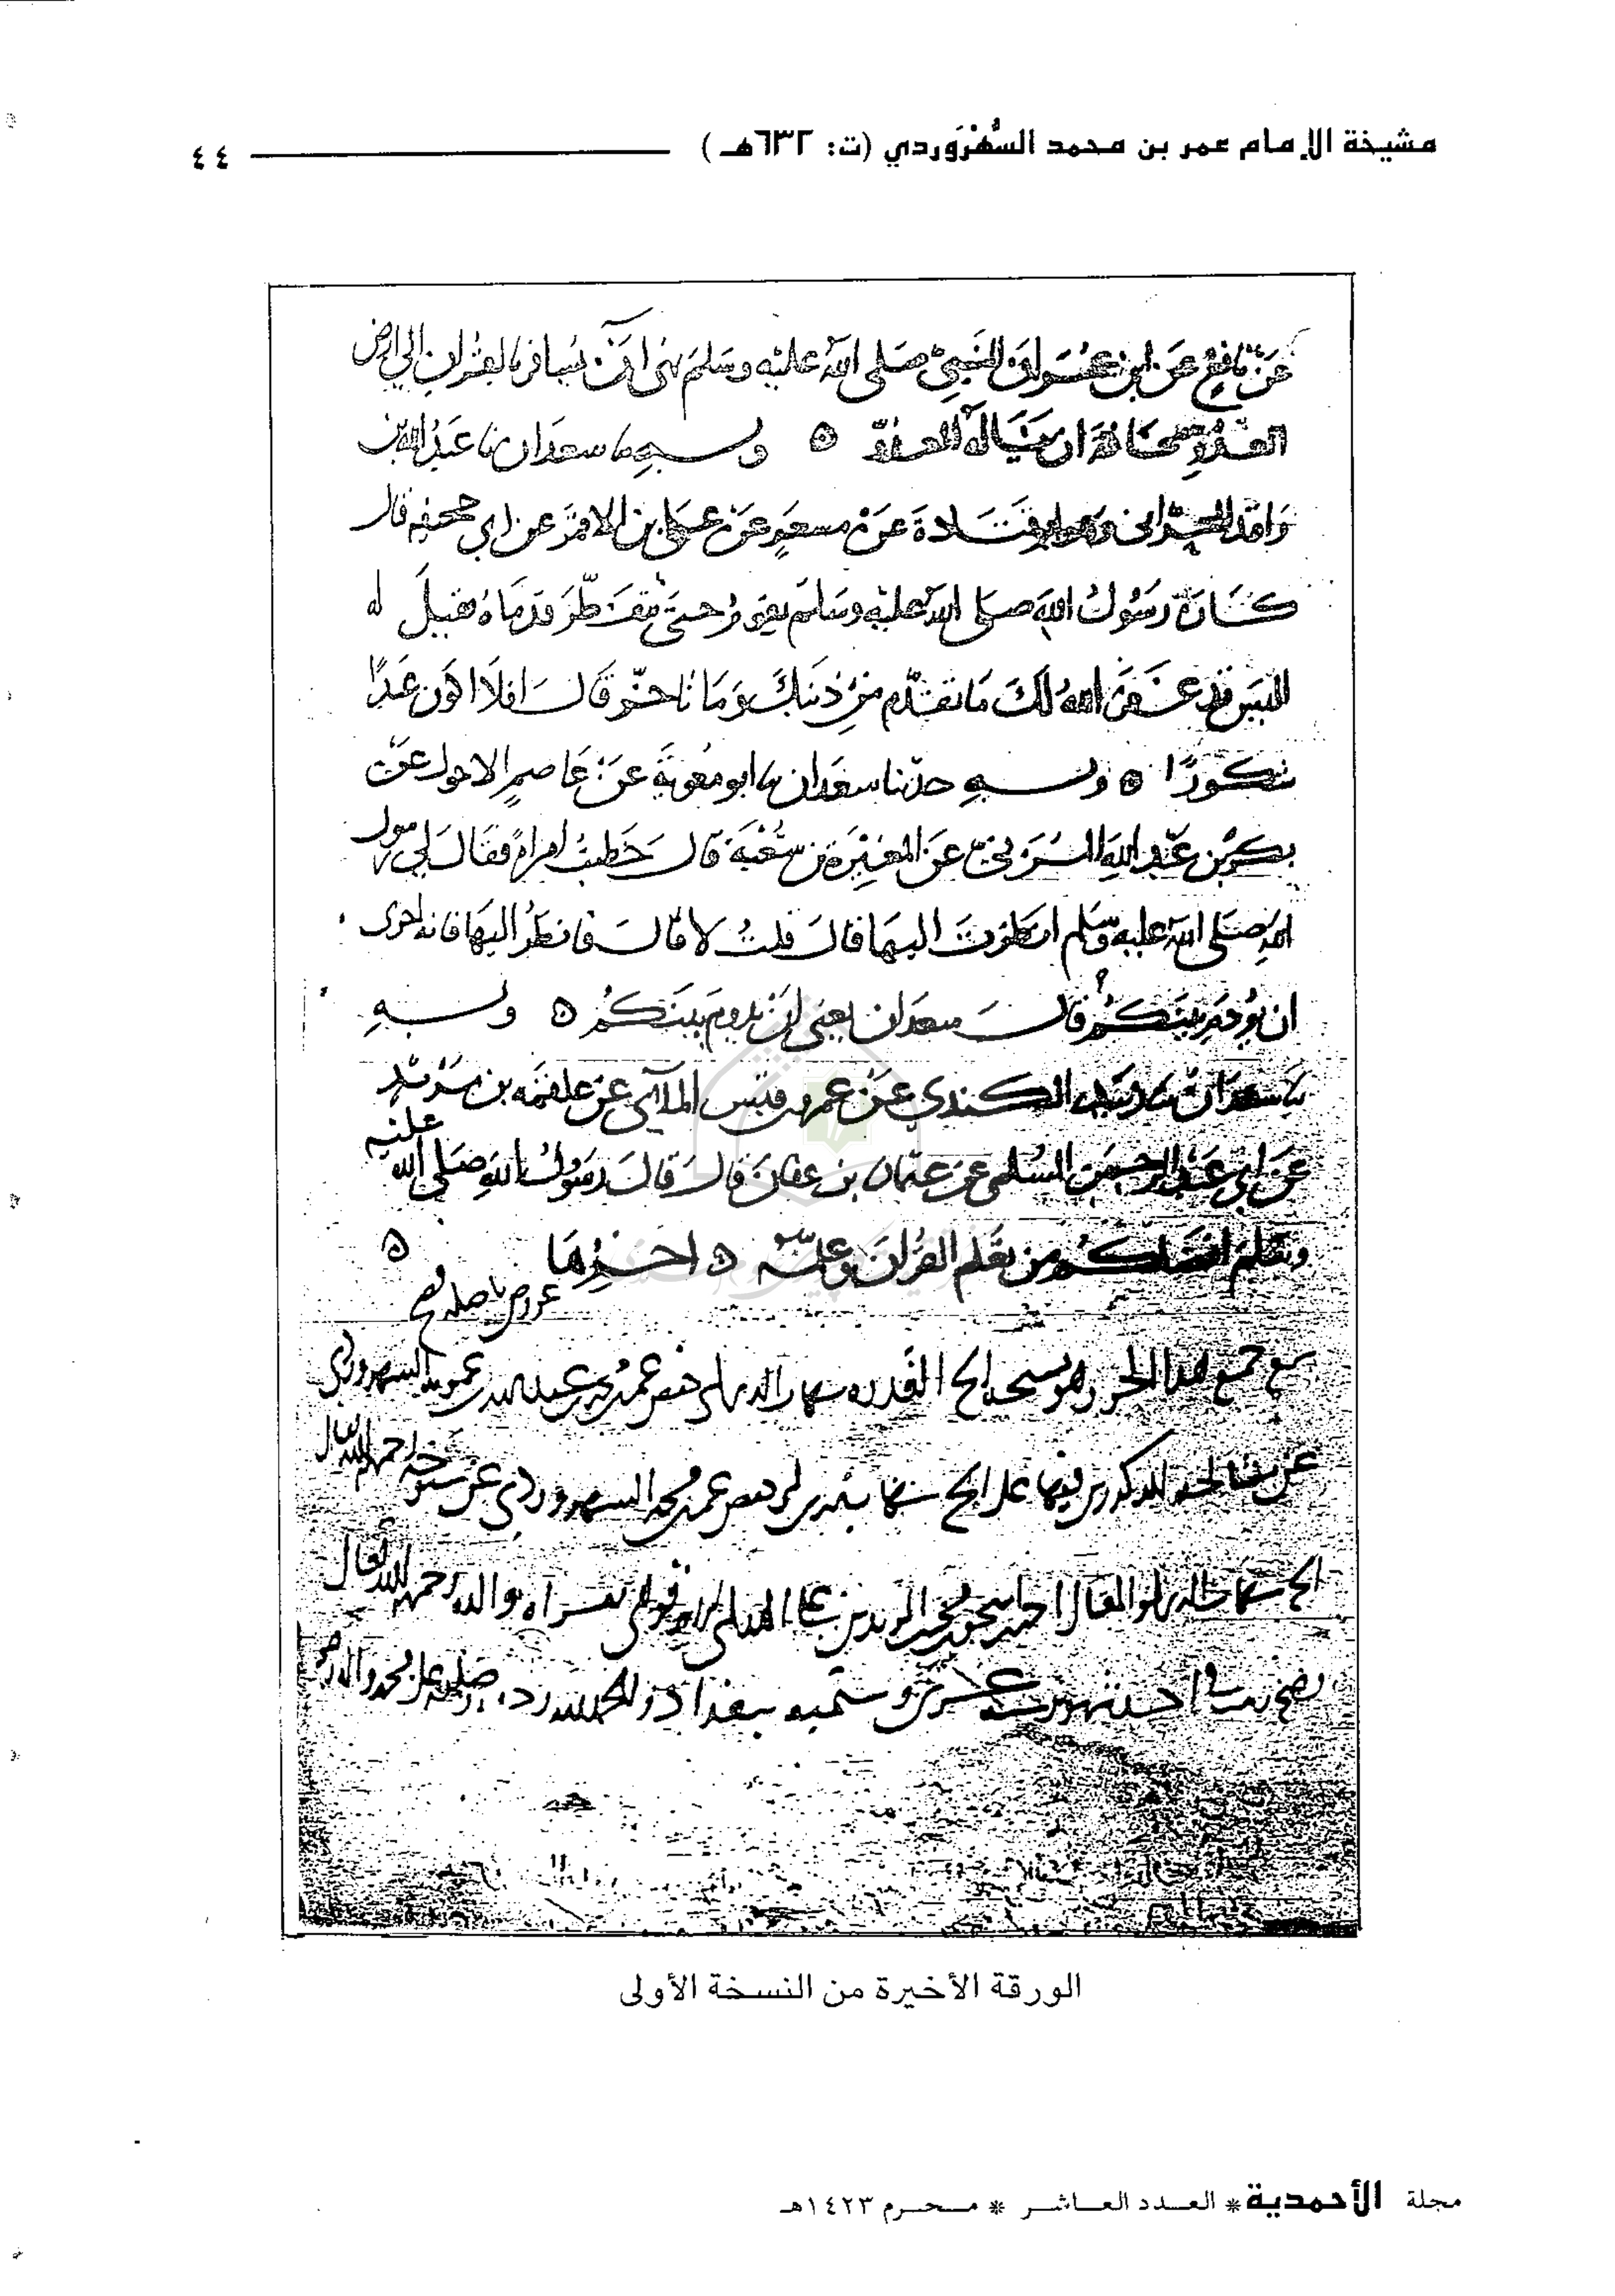 مشيخة الإمام عمر بن محمد السُّهْرَوَردي (ت: ٦٣٢هـ) ٤٤
عن نافع عن ابن عمر ان النبي صلى الله عليه وسلم نهى ان يسافر بالقران الى ارض
العدو مخافة ان يناله العدو ٥ وبـــه ما سعدان نا عبد الله بن
واقد الحراني وهو ابو قتادة عن مسعر عن على بن الاقمر عن ابي جحيفه قال
كان رسول الله صلى الله عليه وسلم يقوم حتى تفطر قدماه فقيل له
اليس قد غفر الله لك ما تقدم من ذنبك وما تاخر قال افلا اكون عبدا
شكورا ٥ وبـــه حدثنا سعدان نا ابو معوية عن عاصم الاحول عن
بكر بن عبد الله المزني عن المغيرة بن شعبة قال خطبت امراة فقال لي رسول
الله صلى الله عليه وسلم انظرت اليها قال قلت لا قال فانظر اليها فانه احرى
ان يودم بينكم قال سعدان يعني ان يدوم بينكم ٥ وبـــه
نا سعدان نا الكندي عن عمرو بن قيس الملآئي عن علقمه بن مرثد
عن ابي عبد الرحمن السلمي عن عثمان بن عفان قال قال رسول الله صلى الله عليه
وسلم افضلكم من تعلم القران وعلمه ٥ اخرها ٥
عورض باصله وصح
سمع جميع هذا الجزو وهو مشيخه الشيخ شهاب الدين ابي حفص عمر بن محمد بن عبد الله بن عمويه السهروردي
عن الشيخ شهاب الدين ابي حفص عمر بن محمد السهروردي عن شيوخه رحمهم الله
الشيخ شهاب الدين ابو المعالي احمد بن اسحق بن محمد بن المويد بن علي الهمداني بقراءة والده رحمه الله تعالى
وستميه ببغداد والحمد لله وصلى الله على محمد واله
الورقة الأخيرة من النسخة الأولى
مجلة الأحمدية * العـدد العـاشـر * مـحـرم ١٤٢٣هـ